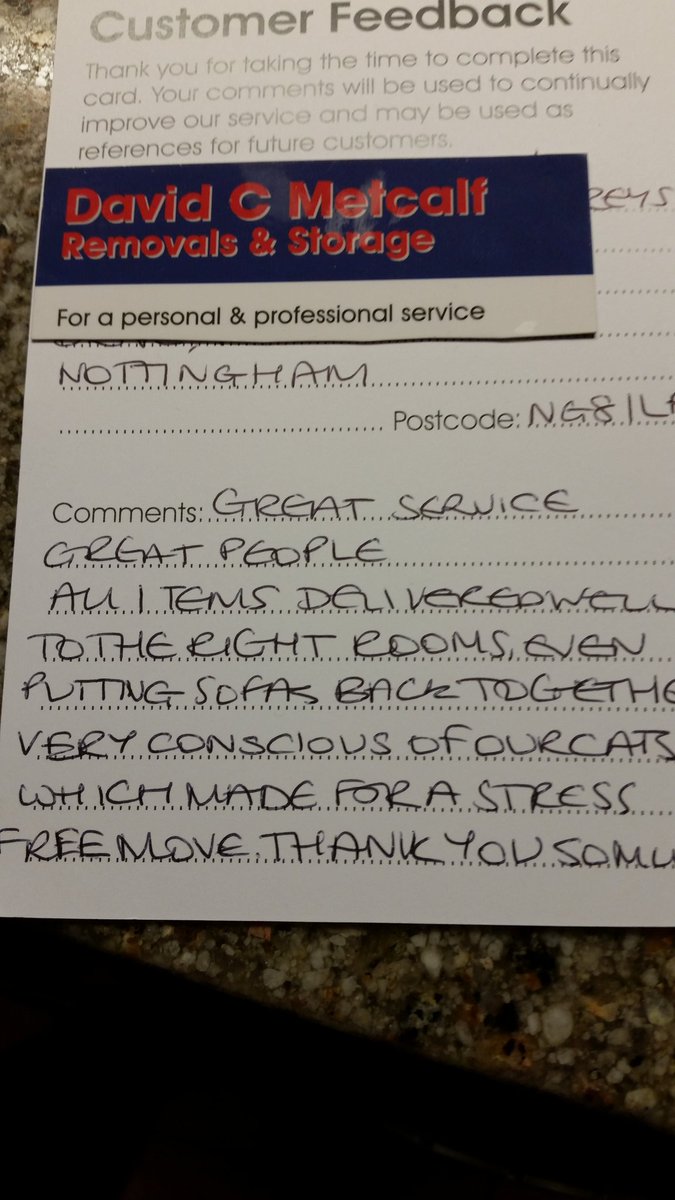 Customer Feedback
Thank you for taking the time to complete this
card. Your comments will be used to continually
improve our service and may be used as
references for future customers.
David C Metcalf
Removals & Storage
For a personal & professional service
NOTTINGHAM
Postcode: NG8 1L
Comments: GREAT SERVICE
GREAT PEOPLE
ALL ITEMS DELIVERED WELL
TO THE RIGHT ROOMS, EVEN
PUTTING SOFAS BACK TOGETHE
VERY CONSCIOUS OF OUR CATS
WHICH MADE FOR A STRESS
FREE MOVE. THANK YOU SO MU